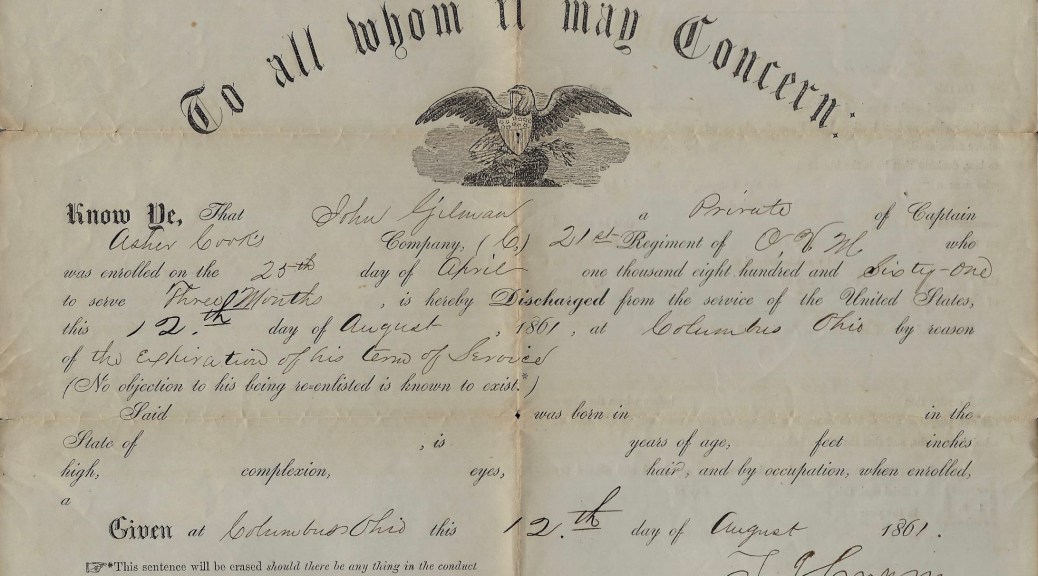 To all whom it may Concern:
Know Ye, That John Gilman a Private of Captain
Asher Cook's Company, (C,) 21st Regiment of O V M who
was enrolled on the 25th day of April one thousand eight hundred and Sixty-One
to serve Three Months, is hereby Discharged from the service of the United States,
this 12.th day of August, 1861, at Columbus Ohio by reason
of the expiration of his term of Service
(No objection to his being re-enlisted is known to exist.*)
Said was born in in the
State of , is years of age, feet inches
high, complexion, eyes, hair, and by occupation, when enrolled,
a
Given at Columbus Ohio this 12.th day of August 1861.
☞*This sentence will be erased should there be any thing in the conduct